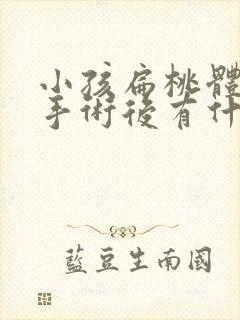 小孩扁桃體
手術後有什
藍豆生南國